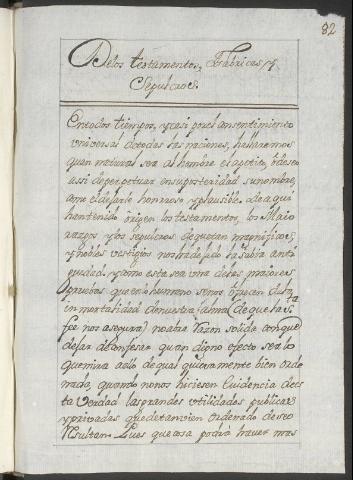 82
De los testamentos, Fabricas, y
Sepulcros.
En todos tiempos, y casi por el consentimiento
universal de todas las naciones, hallaremos
quan natural sea al hombre el apetito, ò deseo
assi de perpetuar en su posteridad su nombre,
como el dejarle honroso y plausible. De aqui
han tenido origen los testamentos, los Maio
razgos y los sepulcros de que tan magnificos,
y nobles vestigios nos ha dejado la sabia anti
guedad. y como esta sea una de las maiores
pruebas que en lo humano se nos ofrecen de la
inmortalidad de nuestra Alma (de que la sta
fee nos asegura) no abra razon solida con que
dejar de confesar quan digno efecto sea lo
que mira a ello de qual quiera mente bien orde
nada, quando no nos hiciesen evidencia de es
ta verdad las grandes utilidades publicas
y privadas que de tan bien ordenado deseo
resultan. Pues que cosa podrá haver mas